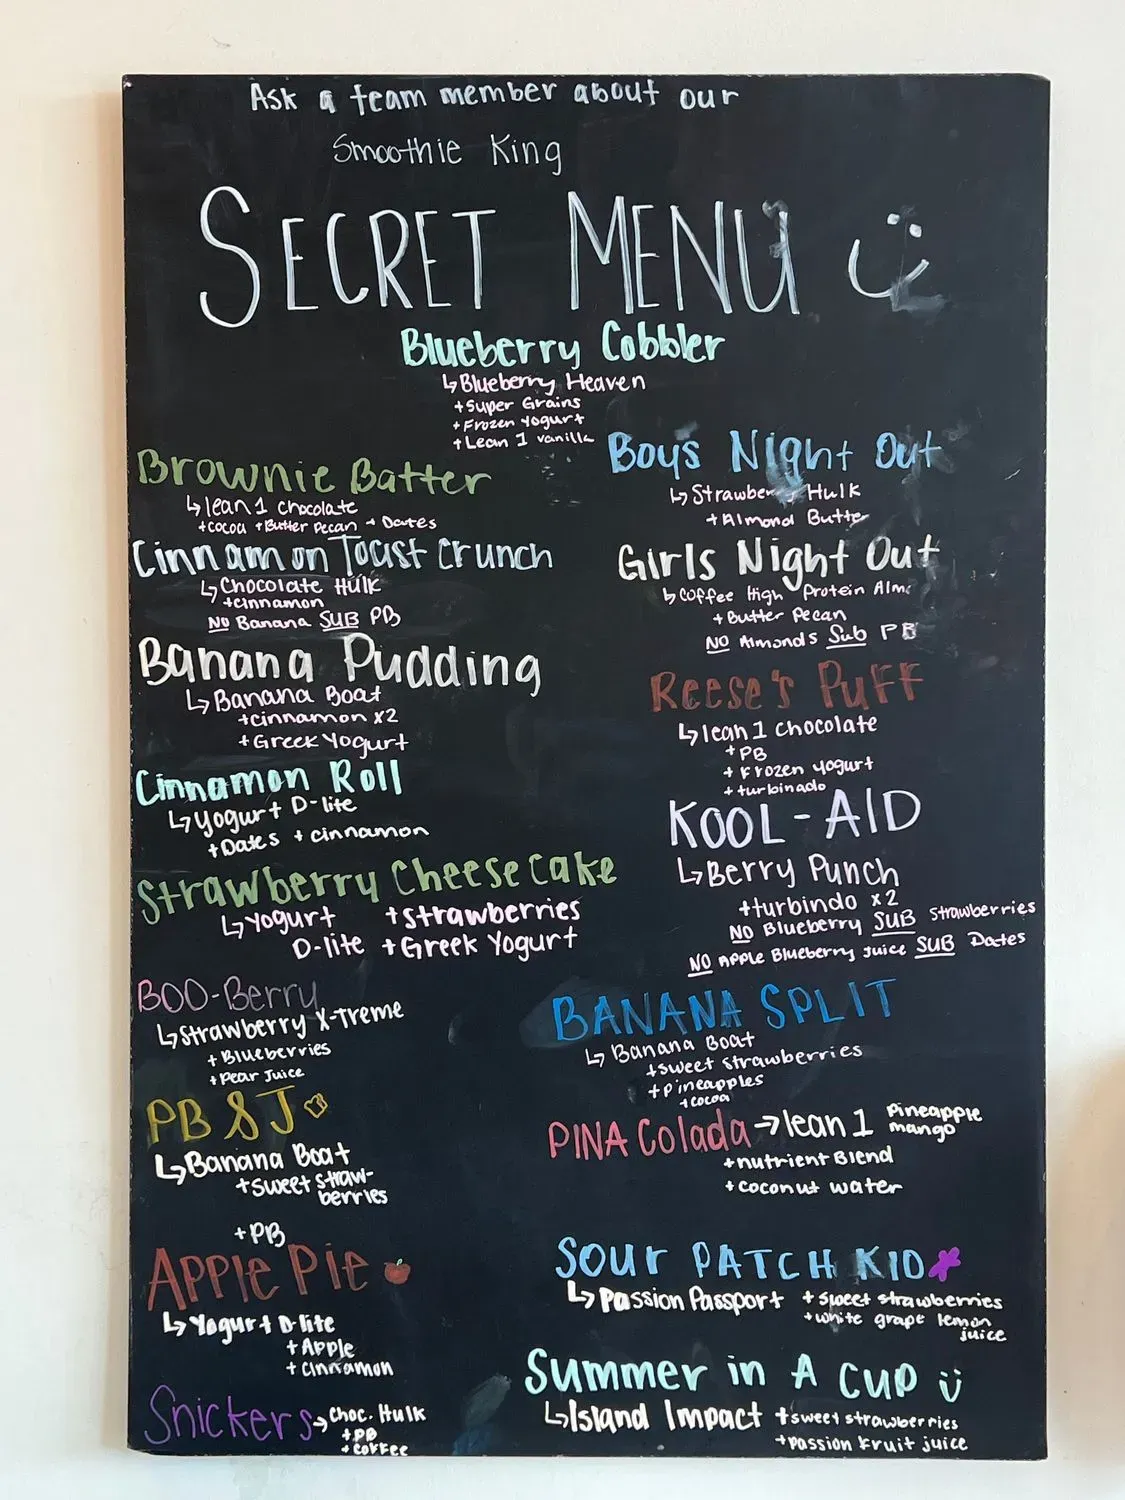 Ask a team member about our
Smoothie King
SECRET MENU
Blueberry Cobbler
↳Blueberry Heaven
+Super Grains
+Frozen Yogurt
+Lean 1 vanilla
Brownie Batter
↳lean 1 chocolate
+cocoa +Butter Pecan + Dates
Cinnamon Toast Crunch
↳Chocolate Hulk
+cinnamon
NO Banana SUB PB
Banana Pudding
↳Banana Boat
+cinnamon x2
+Greek Yogurt
Cinnamon Roll
↳Yogurt D-lite
+Dates + cinnamon
Strawberry Cheesecake
↳Yogurt +strawberries
D-lite +Greek Yogurt
BOO-Berry
↳Strawberry X-Treme
+Blueberries
+Pear Juice
PB & J
↳Banana Boat
+sweet straw-
berries
+PB
APPle Pie
↳Yogurt D-lite
+Apple
+cinnamon
Snickers→Choc. Hulk
+PB
+coffee
Boys Night Out
↳Strawberry Hulk
+Almond Butter
Girls Night Out
↳Coffee High Protein Alm
+Butter Pecan
NO Almonds Sub PB
Reese's Puff
↳lean 1 chocolate
+PB
+Frozen yogurt
+turbinado
KOOL-AID
↳Berry Punch
+turbindo x2
NO Blueberry SUB strawberries
NO Apple Blueberry Juice SUB Dates
BANANA SPLIT
↳Banana Boat
+sweet strawberries
+pineapples
+cocoa
PINA Colada→lean 1 Pineapple
mango
+nutrient Blend
+coconut water
Sour PATCH KID
↳Passion Passport +sweet strawberries
+white grape lemon
juice
Summer in A CUP
↳Island Impact +sweet strawberries
+passion fruit juice